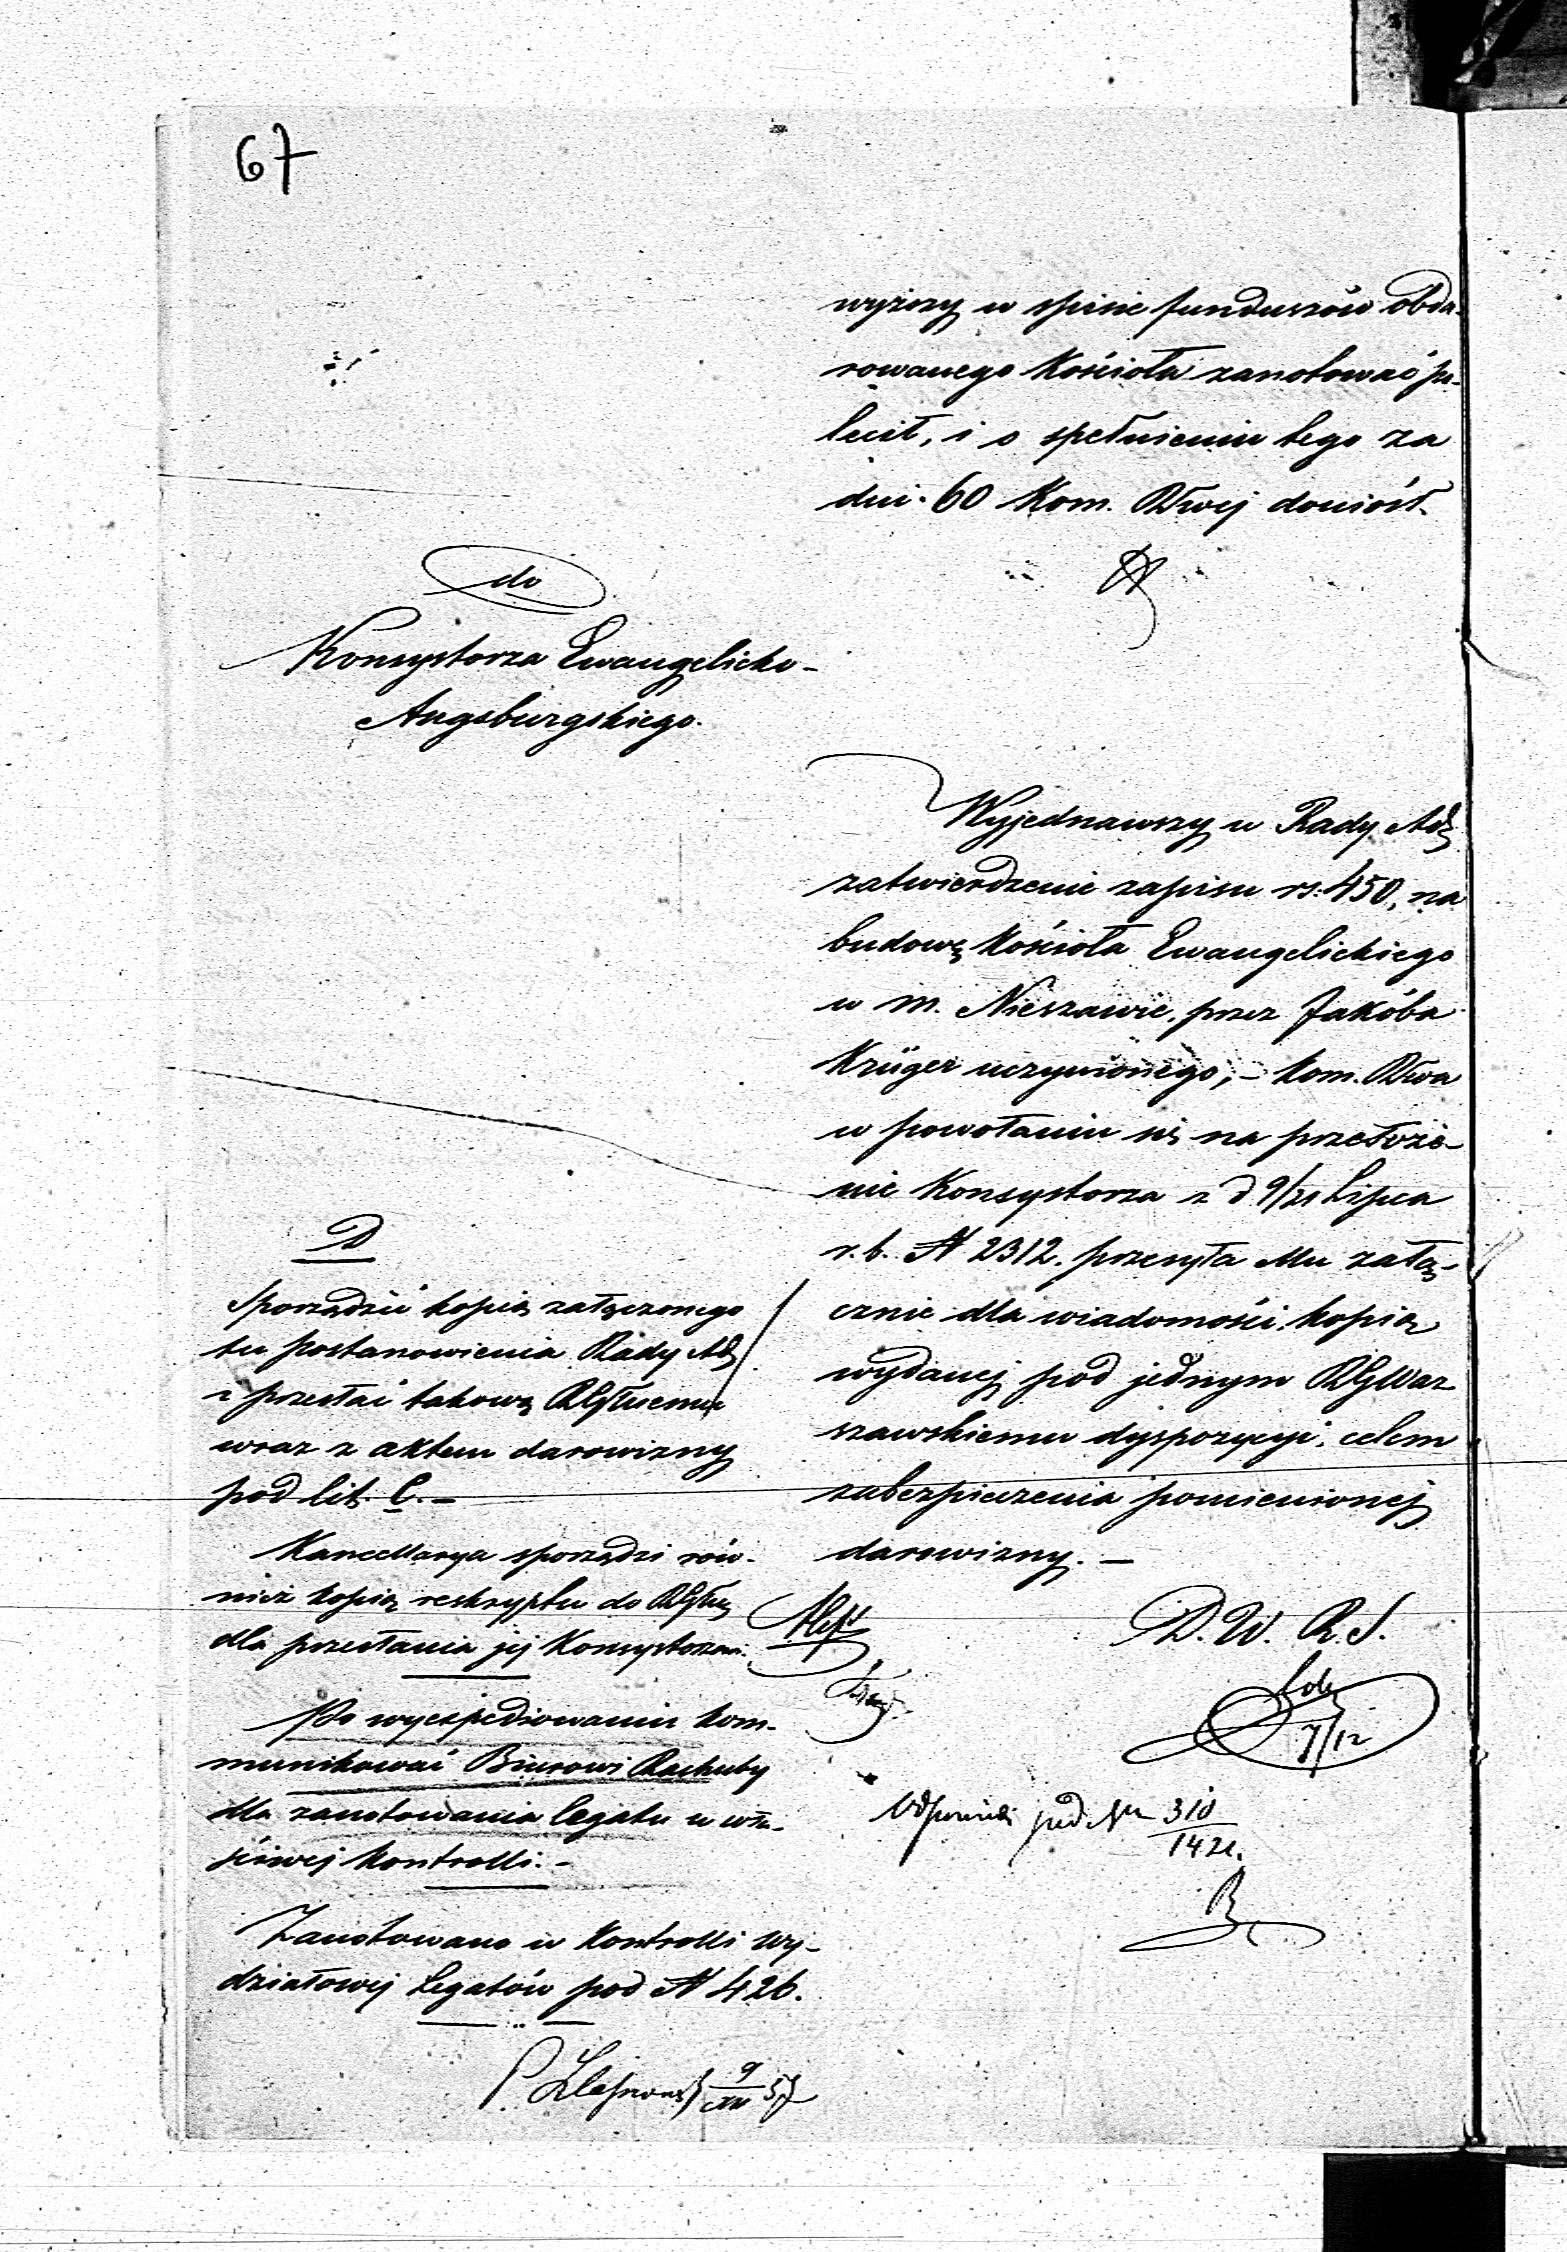 67
wyższy w spisie funduszów obda-
rowanego Kościoła zanotować po-
lecił, i o spełnieniu tego za
dni 60 Kom. Rwej doniósł.
do
Konsystorza Ewangelicko-
Augsburgskiego.
Wyjednawszy u Rady Adz
zatwierdzenie zapisu rs: 450, na
budowę Kościoła Ewangelickiego
w m. Nieszawie, przez Jakóba
Krüger uczynionego, – Kom. Rwa
w powołaniu się na przełoże-
nie Konsystorza z d 9/21 Lipca
r. b. N 2312. przesyła Mu załą-
cznie dla wiadomości, kopią
wydanej pod jednym RGWar
szawskiemu dyspozycyi, celem
zabezpieczenia pomienionej
darowizny. –
D. W. R. S.
7/12
pod Nr 310
1421.
D
Sporządzić kopią załączonego
tu postanowienia Rady Adz
i przesłać takową
wraz z aktem darowizny
pod lit. C. –
Kancellarya sporządzi rów-
nież kopią reskryptu do
dla przesłania jej Konsystorzowi.
Po wyexpediowaniu kom-
munikować Biurowi Rachuby
dla zanotowania legatu w wła-
ściwej kontrolli. –
Zanotowano w Kontrolli Wy-
działowej Legatów pod N 426.
9/XII 57